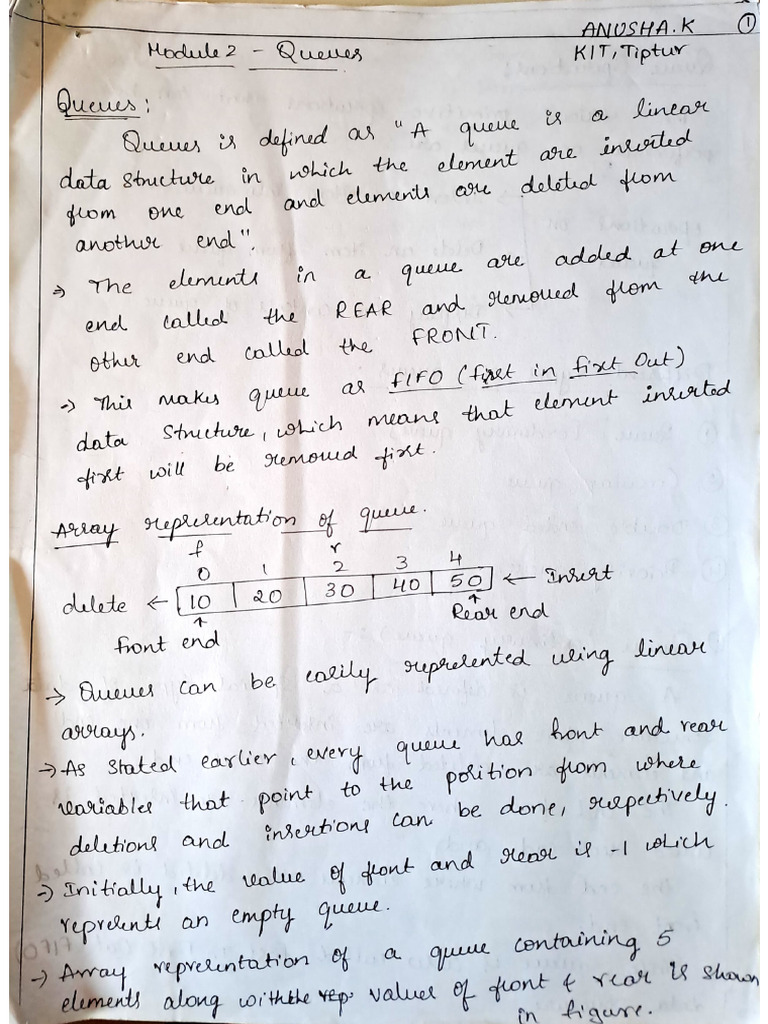 ANUSHA.K ①
Module 2 - Queues KIT, Tiptur
Queues:
Queues is defined as "A queue is a linear
data structure in which the element are inserted
from one end and elements are deleted from
another end".
→ The elements in a queue are added at one
end called the REAR and removed from the
other end called the FRONT.
→ This makes queue as FIFO (first in first Out)
data structure, which means that element inserted
first will be removed first.
Array representation of queue.
f r
0 1 2 3 4
delete ← 10 20 30 40 50 ← Insert
↑ ↑
front end Rear end
→ Queues can be easily represented using linear
arrays.
→ As stated earlier, every queue has front and rear
variables that point to the position from where
deletions and insertions can be done, respectively.
→ Initially, the value of front and rear is -1 which
represents an empty queue.
→ Array representation of a queue containing 5
elements along with the values of front & rear is shown
in figure.